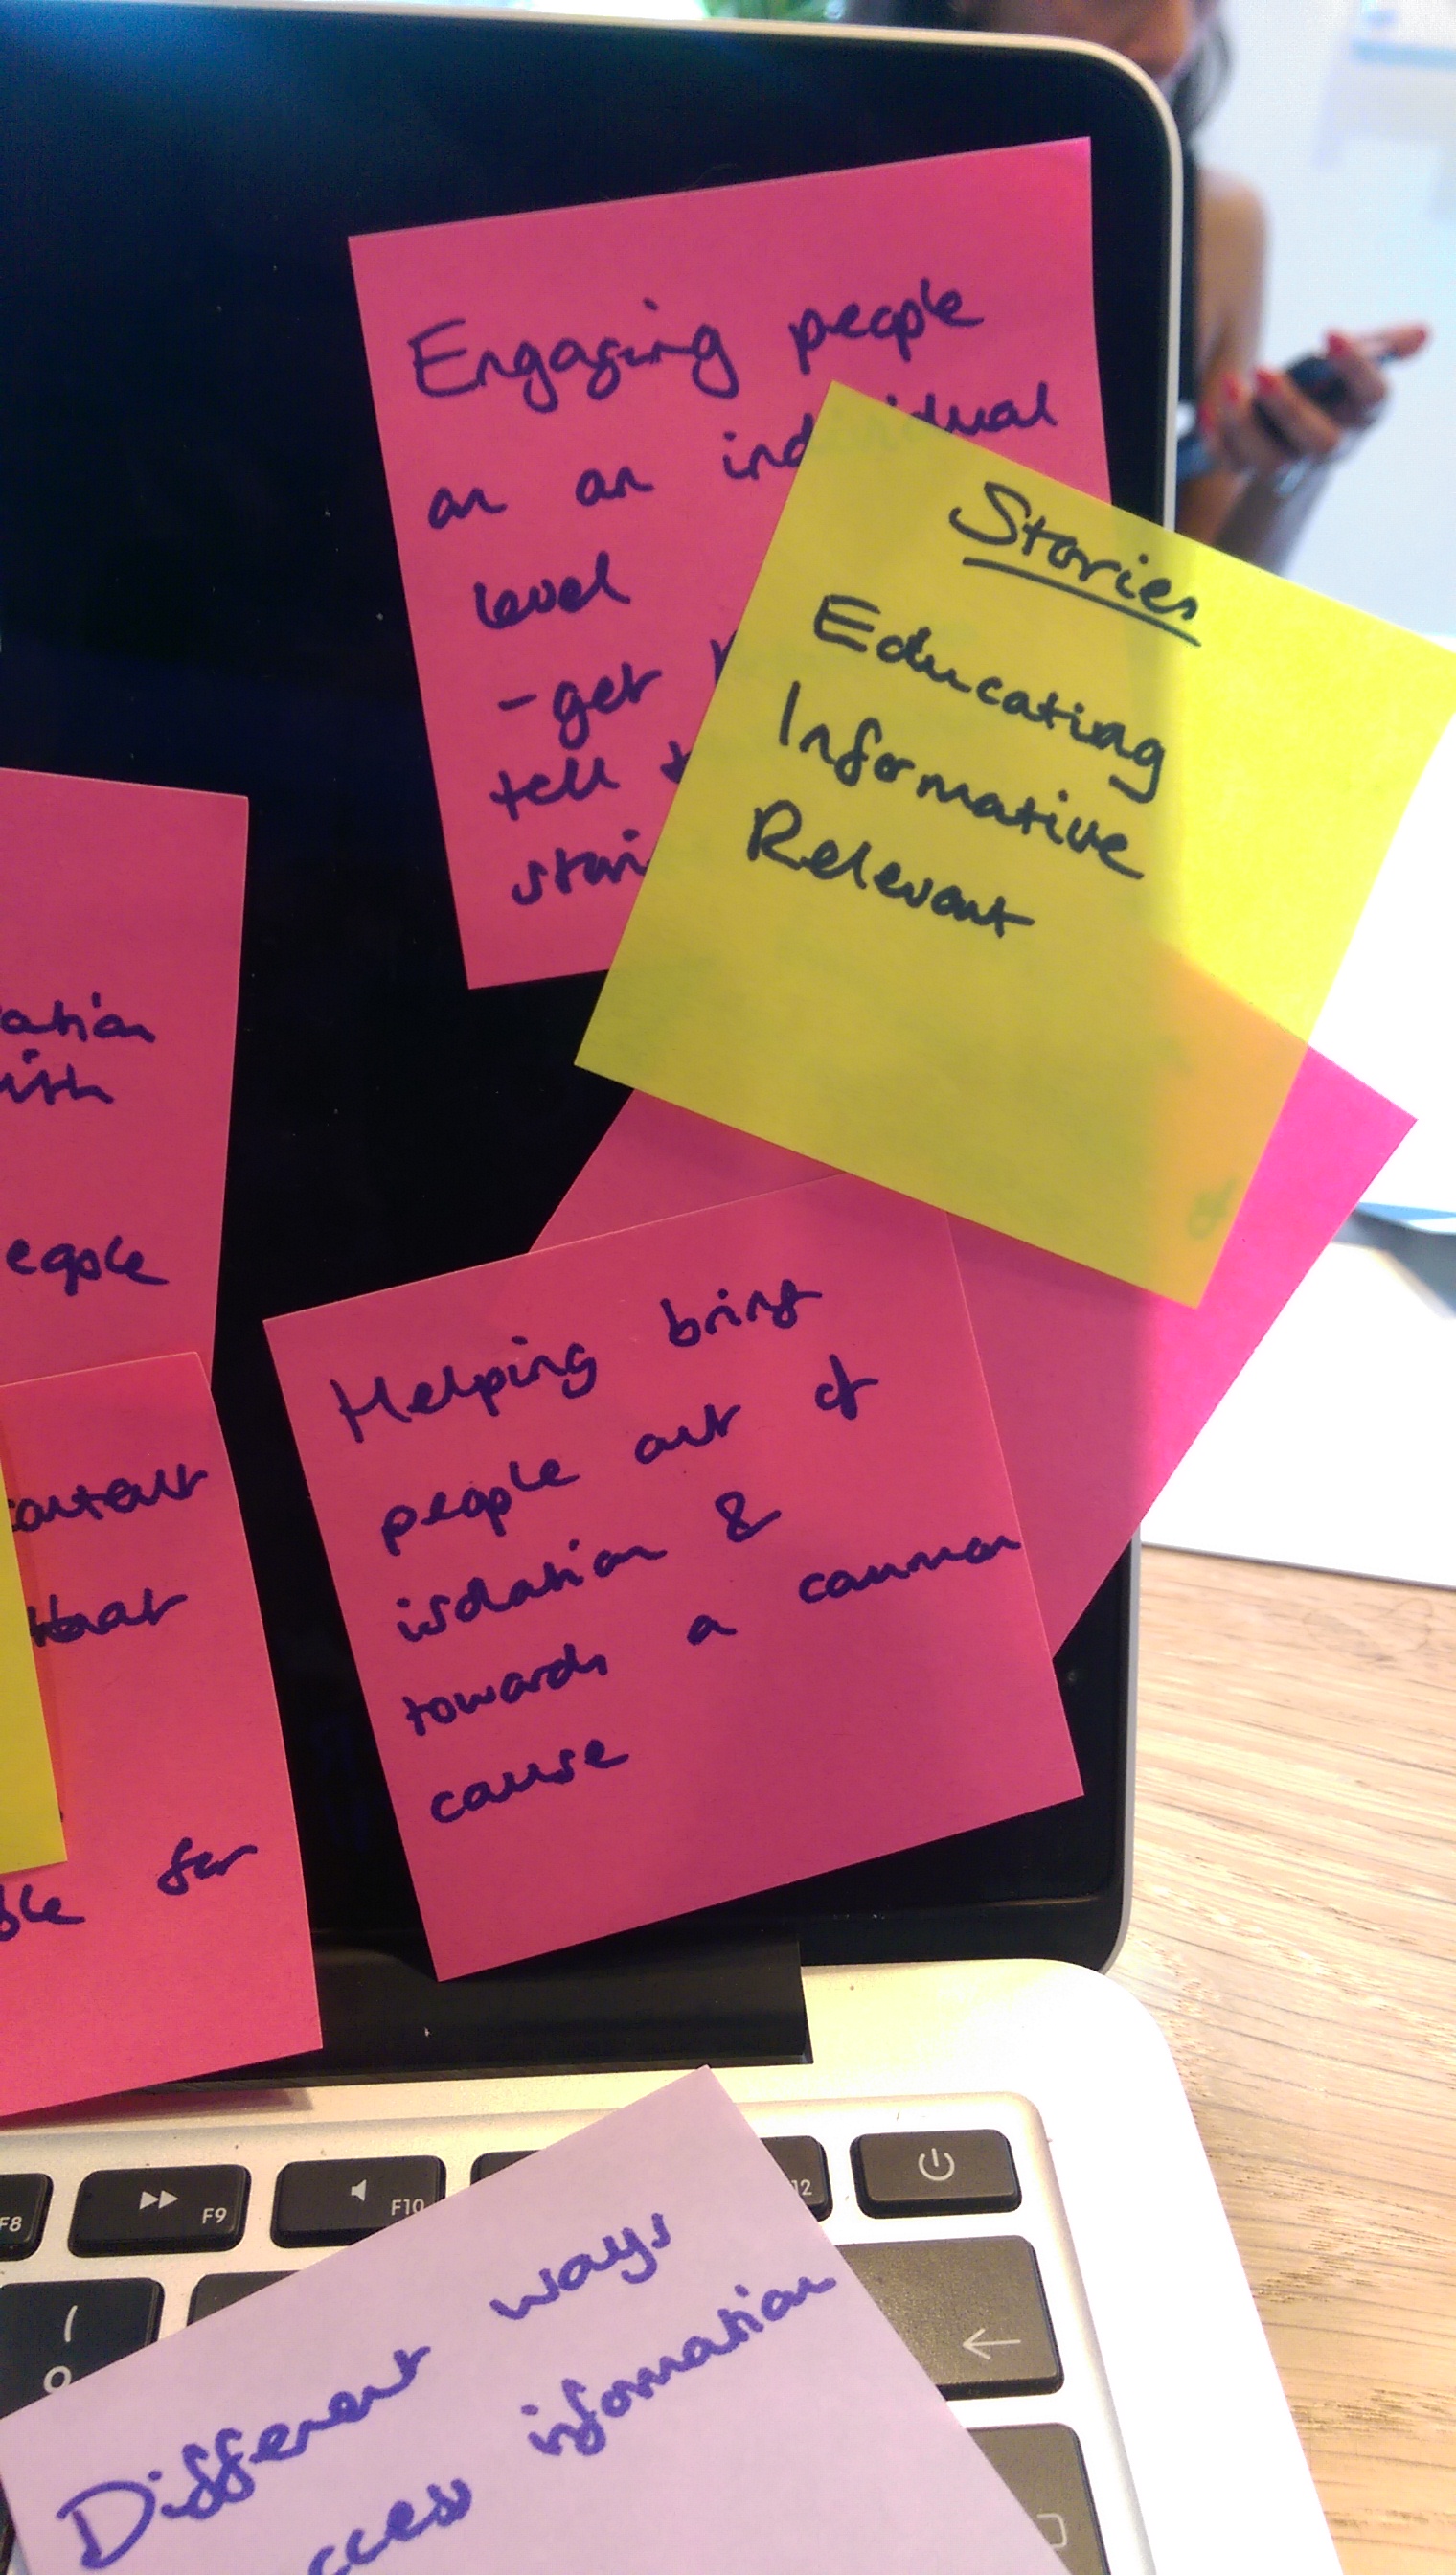 Engaging people
on an individual
level
-get
tell
Stories
Educating
Informative
Relevant
with
Helping bring
people out of
isolation &
towards a common
cause
content
that
for
F8
F9
F10
12
Different ways
information